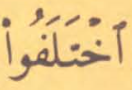 ٱخْتَلَفُوا۟